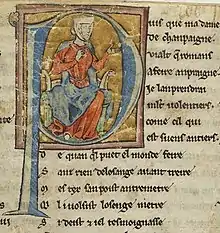 Puis que ma dame
de chanpaigne.
vialt q̃ romans
a feire anpraigne.
Je lanprendrai
mlt volentiers.
come cil qui
est suens antiers.
D e quan q̃l puet el monde feire
S anz rien de losange avant treire
M es tex san poist antremetre
Q i volsist losenge metre
S i deist ⁊ iel tesmoignasse